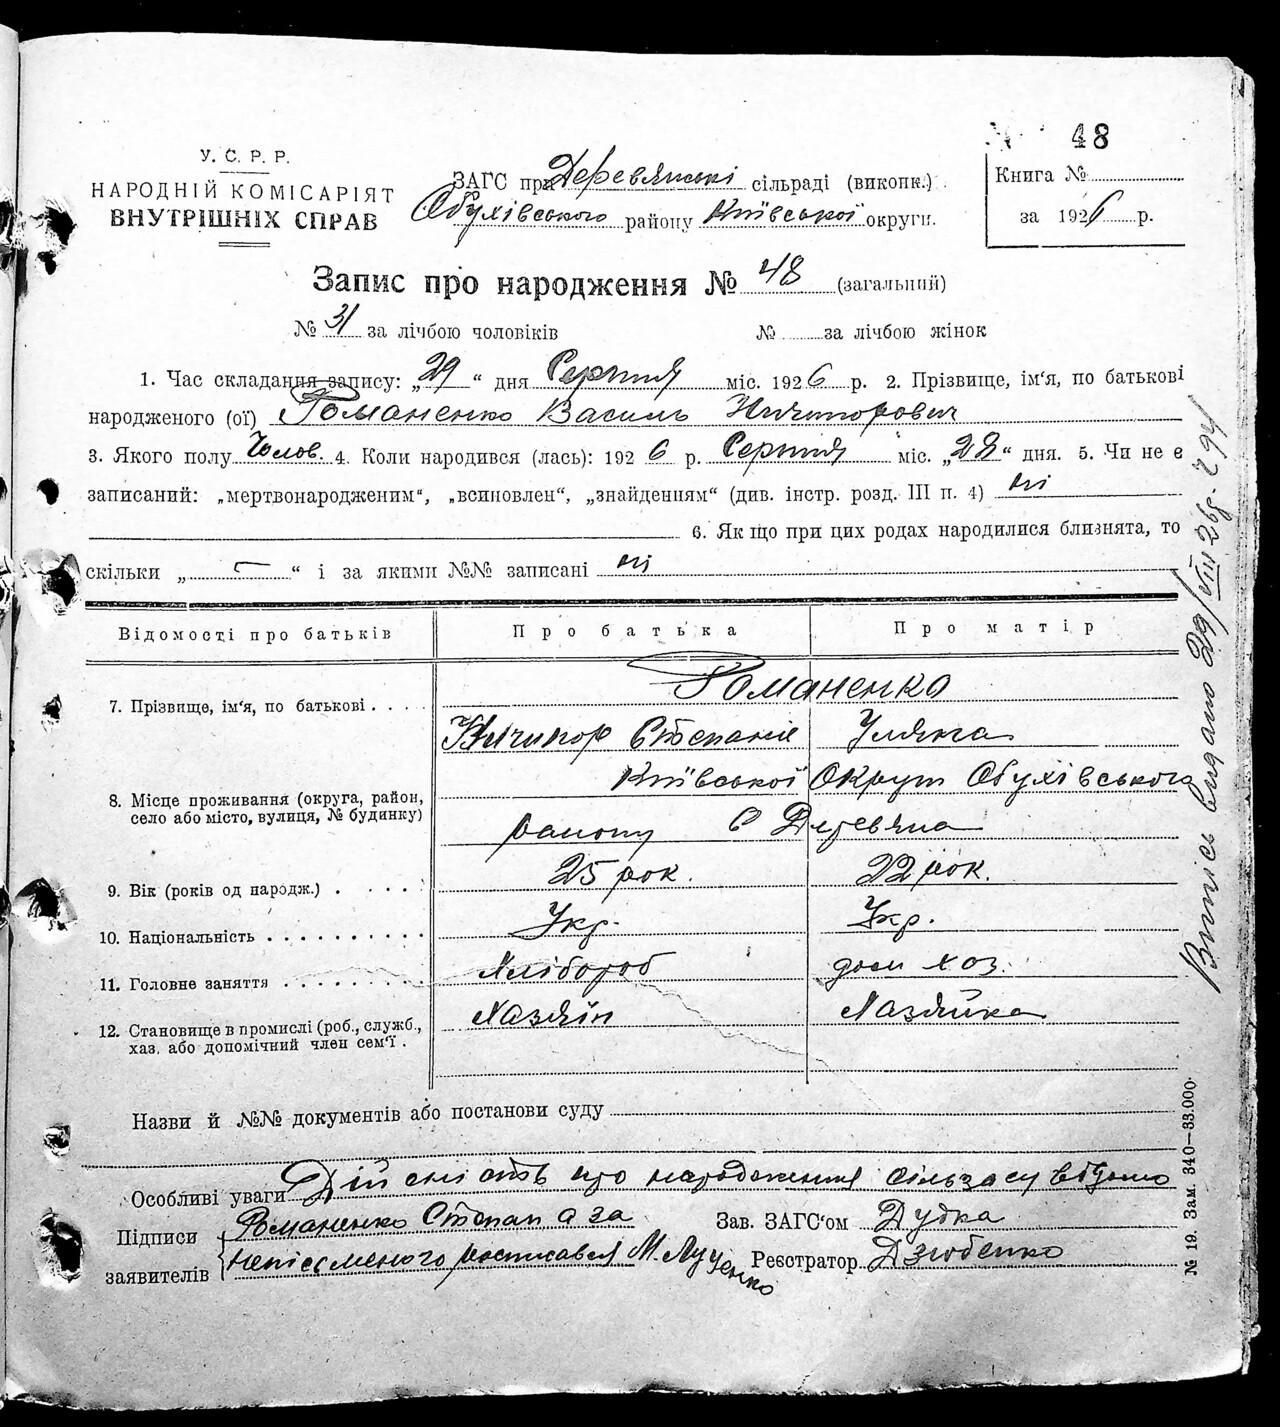 48
У. С. Р. Р.
НАРОДНІЙ КОМІСАРІЯТ
ВНУТРІШНІХ СПРАВ
ЗАГС при Деревянські сільраді (викопк.)
Обухівського району Київської округи.
Книга №
за 1926 р.
Запис про народження № 48 (загальний)
№ 31 за лічбою чоловіків № за лічбою жінок
1. Час складання запису: „29“ дня Серпня міс. 1926 р. 2. Прізвище, ім'я, по батькові
народженого (ої) Романенко Василь Ничипорович
3. Якого полу Чолов. 4. Коли народився (лась): 1926 р. Серпня міс. „28“ дня. 5. Чи не є
записаний: „мертвонародженим“, „всиновлен“, „знайденням“ (див. інстр. розд. III п. 4) ні
6. Як що при цих родах народилися близнята, то
скільки „ — “ і за якими №№ записані ні
Відомості про батьків Про батька Про матір
7. Прізвище, ім'я, по батькові . . . . Романенко
Ничипор Степанів Уляна
8. Місце проживання (округа, район, село або місто, вулиця, № будинку) Київської Округи Обухівського
району С Деревяна
9. Вік (років од народж.) . . . . . 25 рок. 22 рок.
10. Національність . . . . . . . . . . Укр. Укр.
11. Головне заняття . . . . . . . . . Хлібороб дом хоз.
12. Становище в промислі (роб., служб., хаз. або допомічний член сем'ї . Хазяїн Хазяйка
Назви й №№ документів або постанови суду
Особливі уваги Дійсність про народження сільзагсу відомо
Підписи заявителів Романенко Степан а за
непісьменого росписався М. Луценко
Зав. ЗАГС'ом Дудка
Реєстратор Дзюбенко
Випісь видано 29/VIII 26 р.
№ 19. Зам. 340—33.000.